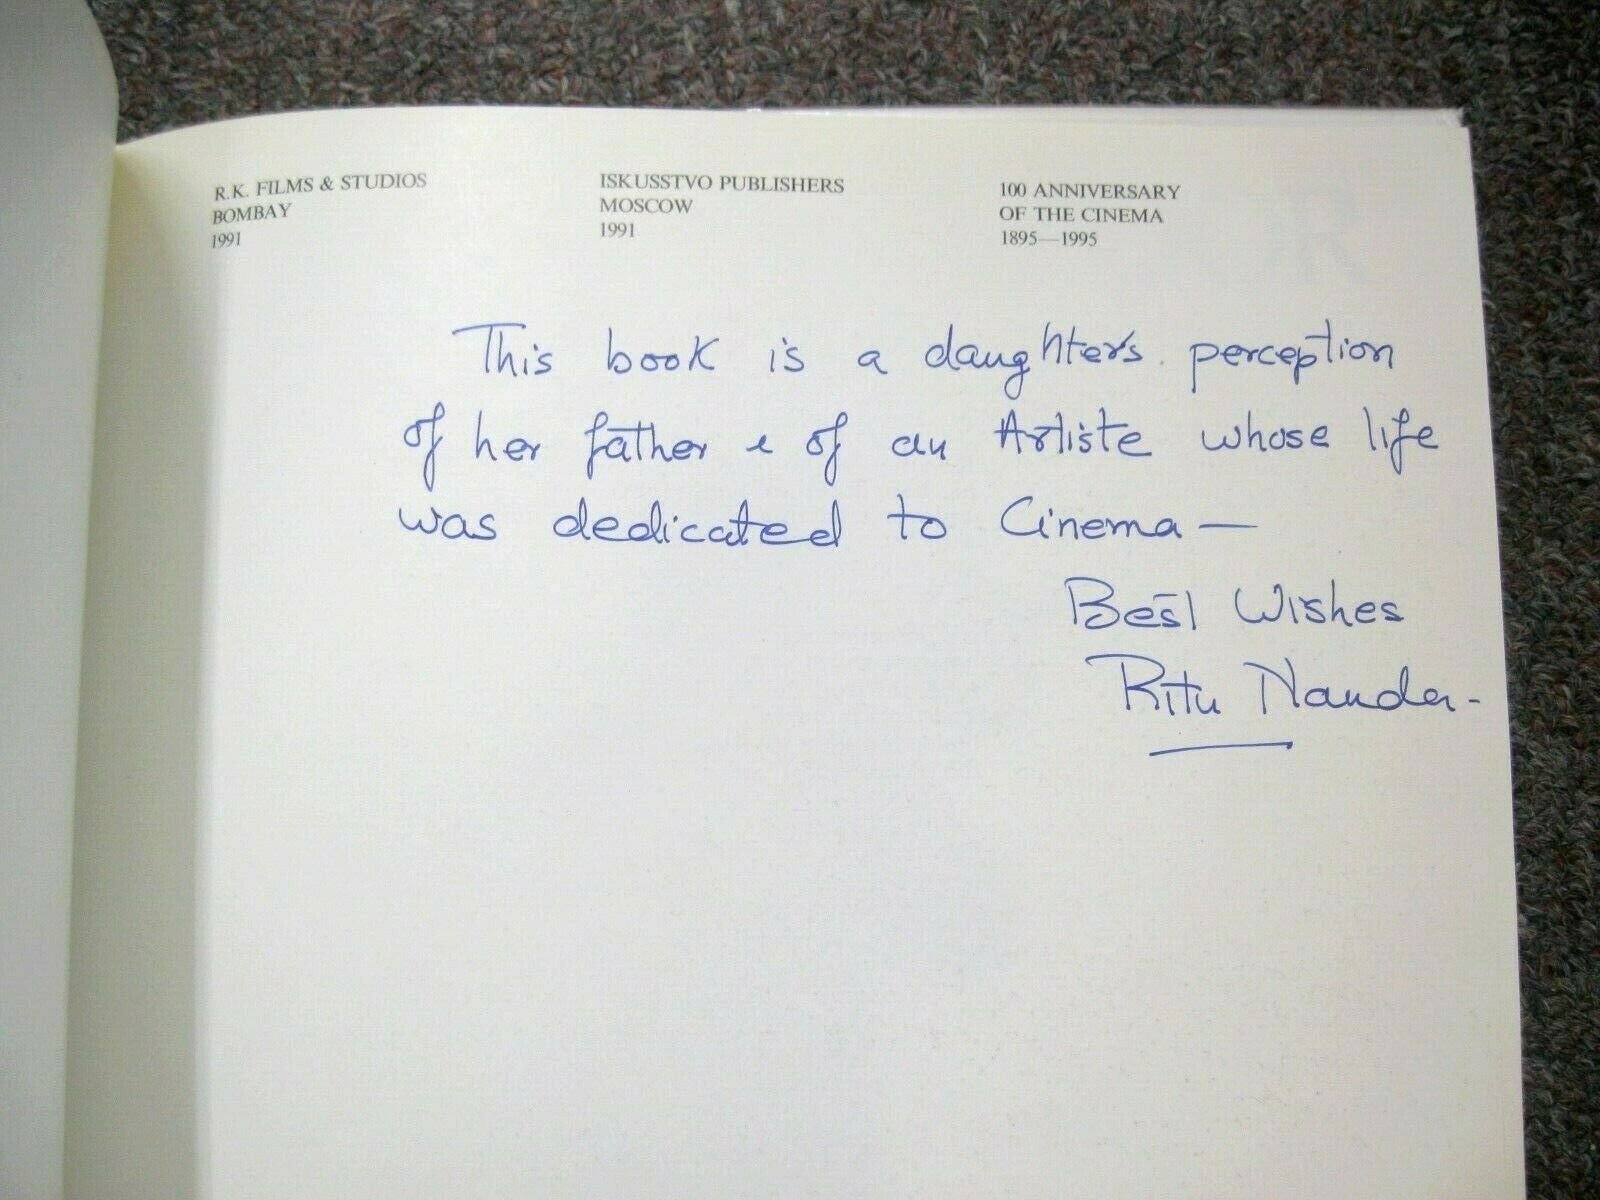 R.K. FILMS & STUDIOS
BOMBAY
1991
ISKUSSTVO PUBLISHERS
MOSCOW
1991
100 ANNIVERSARY
OF THE CINEMA
1895—1995
This book is a daughters perception
of her father & of an Artiste whose life
was dedicated to Cinema —
Best Wishes
Ritu Nanda -